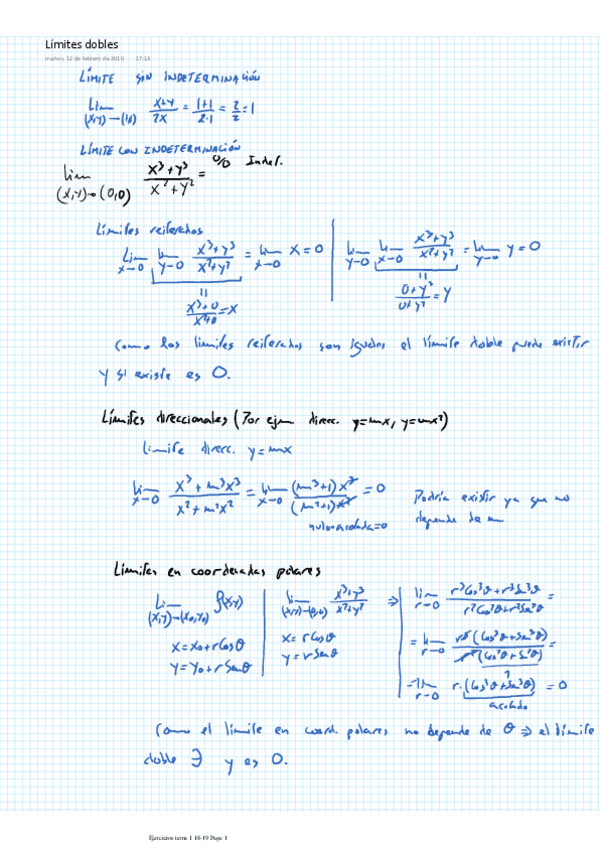 Límites dobles
martes, 12 de febrero de 2019 17:13
LÍMITE SIN INDETERMINACIÓN
Lim (x,y)→(1,1) x+y / 2x = 1+1 / 2·1 = 2/2 = 1
LÍMITE CON INDETERMINACIÓN
lim (x,y)→(0,0) x³+y³ / x²+y² = 0/0 Indet.
Límites reiterados
Lim x→0 lim y→0 x³+y³ / x²+y² = lim x→0 x = 0
x³+0 / x²+0 = x
lim y→0 lim x→0 x³+y³ / x²+y² = lim y→0 y = 0
0+y³ / 0+y² = y
Como los límites reiterados son iguales el límite doble puede existir
y si existe es 0.
Límites direccionales (Por ejem direcc. y=mx, y=mx²)
Límite direcc. y=mx
lim x→0 x³+m³x³ / x²+m²x² = lim x→0 (m³+1)x³ / (m²+1)x² = 0
nulo·acotada=0
Podría existir ya que no
depende de m
Límites en coordenadas polares
Lim (x,y)→(x₀,y₀) f(x,y)
x=x₀+rCosθ
y=y₀+rSenθ
lim (x,y)→(0,0) x³+y³ / x²+y² ⇒
x=rCosθ
y=rSenθ
lim r→0 r³Cos³θ+r³Sen³θ / r²Cos²θ+r²Sen²θ =
= lim r→0 r³(Cos³θ+Sen³θ) / r²(Cos²θ+Sen²θ) =
1
= lim r→0 r·(Cos³θ+Sen³θ) = 0
acotado
Como el límite en coord. polares no depende de θ ⇒ el límite
doble ∃ y es 0.
Ejercicios tema 1 18-19 Page 1